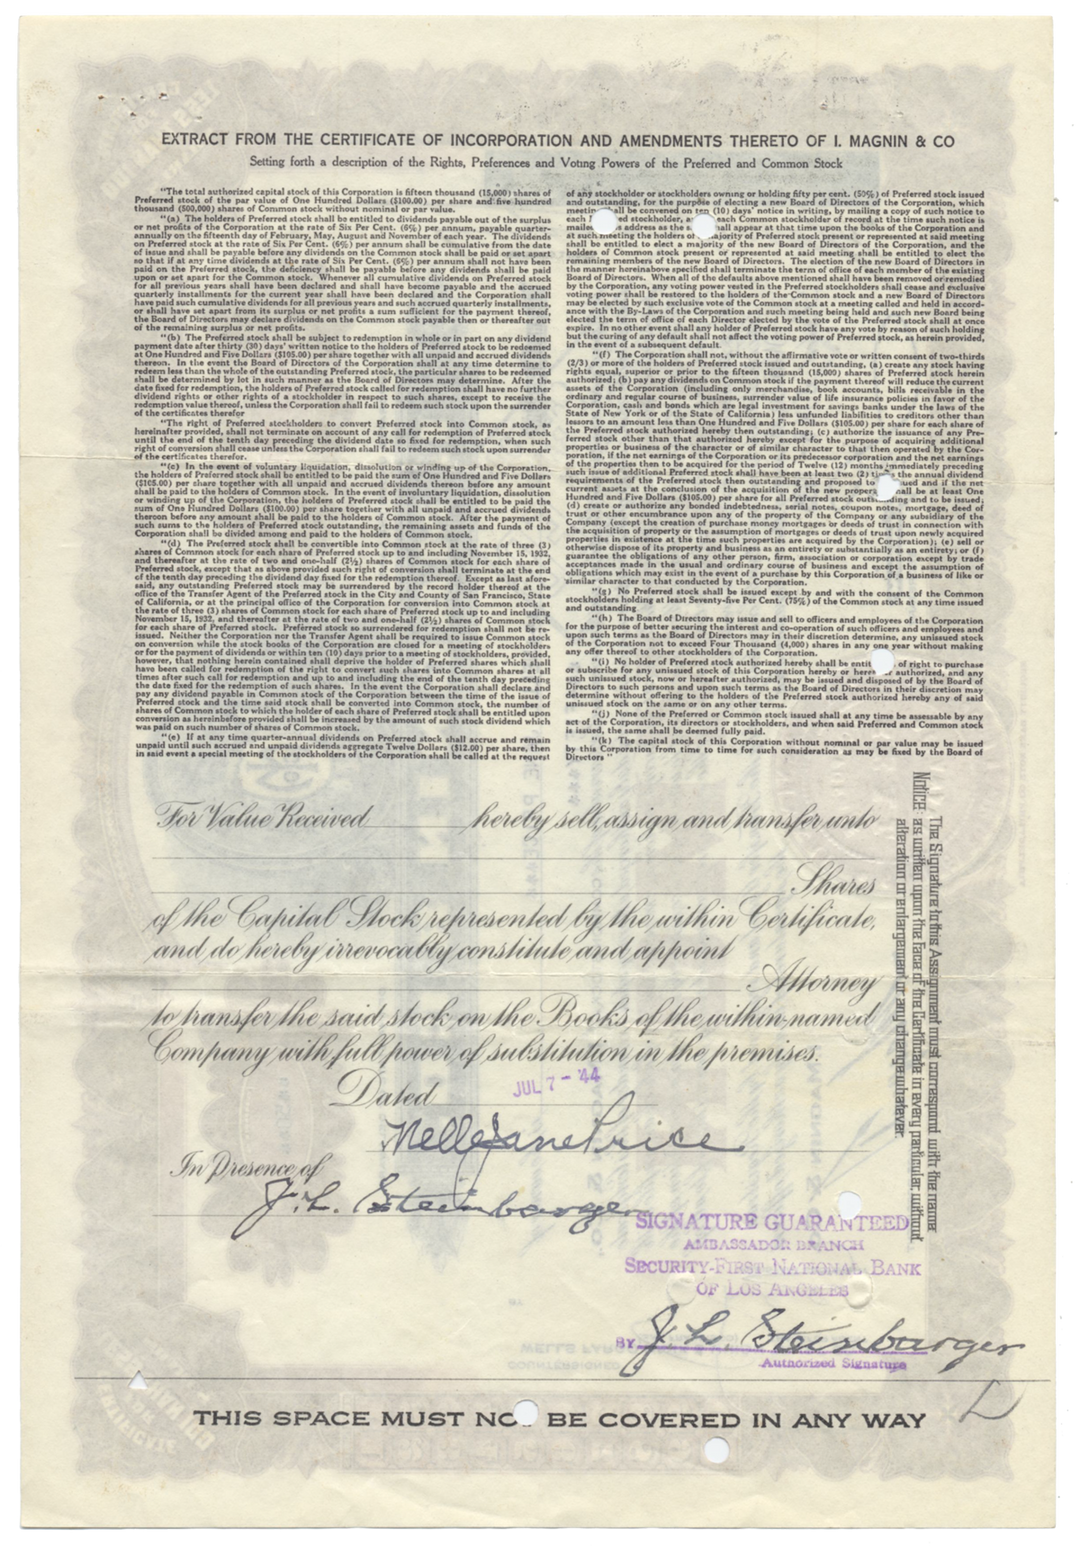 EXTRACT FROM THE CERTIFICATE OF INCORPORATION AND AMENDMENTS THERETO OF I. MAGNIN & CO
Setting forth a description of the Rights, Preferences and Voting Powers of the Preferred and Common Stock
"The total authorized capital stock of this Corporation is fifteen thousand (15,000) shares of
Preferred stock of the par value of One Hundred Dollars ($100.00) per share and five hundred
thousand (500,000) shares of Common stock without nominal or par value.
"(a) The holders of Preferred stock shall be entitled to dividends payable out of the surplus
or net profits of the Corporation at the rate of Six Per Cent. (6%) per annum, payable quarter-
annually on the fifteenth day of February, May, August and November of each year. The dividends
on Preferred stock at the rate of Six Per Cent. (6%) per annum shall be cumulative from the date
of issue and shall be payable before any dividends on the Common stock shall be paid or set apart
so that if at any time dividends at the rate of Six Per Cent. (6%) per annum shall not have been
paid on the Preferred stock, the deficiency shall be payable before any dividends shall be paid
upon or set apart for the Common stock. Whenever all cumulative dividends on the Preferred stock
for all previous years shall have been declared and shall have become payable and the accrued
quarterly installments for the current year shall have been declared and the Corporation shall
have paid such cumulative dividends for all previous years and such accrued quarterly installments,
or shall have set apart from its surplus or net profits a sum sufficient for the payment thereof,
the Board of Directors may declare dividends on the Common stock payable then or thereafter out
of the remaining surplus or net profits.
"(b) The Preferred stock shall be subject to redemption in whole or in part on any dividend
payment date after thirty (30) days' written notice to the holders of Preferred stock to be redeemed
at One Hundred and Five Dollars ($105.00) per share together with all unpaid and accrued dividends
thereon. In the event the Board of Directors of the Corporation shall at any time determine to
redeem less than the whole of the outstanding Preferred stock, the particular shares to be redeemed
shall be determined by lot in such manner as the Board of Directors may determine. After the
date fixed for redemption, the holders of Preferred stock called for redemption shall have no further
dividend rights or other rights of a stockholder in respect to such shares, except to receive the
redemption value thereof, unless the Corporation shall fail to redeem such stock upon the surrender
of the certificates therefor
"The right of Preferred stockholders to convert Preferred stock into Common stock, as
hereinafter provided, shall not terminate on account of any call for redemption of Preferred stock
until the end of the tenth day preceding the dividend date so fixed for redemption, when such
right of conversion shall cease unless the Corporation shall fail to redeem such stock upon surrender
of the certificates therefor.
"(c) In the event of voluntary liquidation, dissolution or winding up of the Corporation,
the holders of Preferred stock shall be entitled to be paid the sum of One Hundred and Five Dollars
($105.00) per share together with all unpaid and accrued dividends thereon before any amount
shall be paid to the holders of Common stock. In the event of involuntary liquidation, dissolution
or winding up of the Corporation, the holders of Preferred stock shall be entitled to be paid the
sum of One Hundred Dollars ($100.00) per share together with all unpaid and accrued dividends
thereon before any amount shall be paid to the holders of Common stock. After the payment of
such sums to the holders of Preferred stock outstanding, the remaining assets and funds of the
Corporation shall be divided among and paid to the holders of Common stock.
"(d) The Preferred stock shall be convertible into Common stock at the rate of three (3)
shares of Common stock for each share of Preferred stock up to and including November 15, 1932,
and thereafter at the rate of two and one-half (2½) shares of Common stock for each share of
Preferred stock, except that as above provided such right of conversion shall terminate at the end
of the tenth day preceding the dividend day fixed for the redemption thereof. Except as last afore-
said, any outstanding Preferred stock may be surrendered by the record holder thereof at the
office of the Transfer Agent of the Preferred stock in the City and County of San Francisco, State
of California, or at the principal office of the Corporation for conversion into Common stock at
the rate of three (3) shares of Common stock for each share of Preferred stock up to and including
November 15, 1932, and thereafter at the rate of two and one-half (2½) shares of Common stock
for each share of Preferred stock. Preferred stock so surrendered for redemption shall not be re-
issued. Neither the Corporation nor the Transfer Agent shall be required to issue Common stock
on conversion while the stock books of the Corporation are closed for a meeting of stockholders
or for the payment of dividends or within ten (10) days prior to a meeting of stockholders, provided,
however, that nothing herein contained shall deprive the holder of Preferred shares which shall
have been called for redemption of the right to convert such shares into Common shares at all
times after such call for redemption and up to and including the end of the tenth day preceding
the date fixed for the redemption of such shares. In the event the Corporation shall declare and
pay any dividend in Common stock of the Corporation between the time of the issue of
Preferred stock and the time said stock shall be converted into Common stock, the number of
shares of Common stock to which the holder of each share of Preferred stock shall be entitled upon
conversion as hereinbefore provided shall be increased by the amount of such stock dividend which
was paid on such number of shares of Common stock.
"(e) If at any time quarter-annual dividends on Preferred stock shall accrue and remain
unpaid until such accrued and unpaid dividends aggregate Twelve Dollars ($12.00) per share, then
in said event a special meeting of the stockholders of the Corporation shall be called at the request
of any stockholder or stockholders owning or holding fifty per cent. (50%) of Preferred stock issued
and outstanding, for the purpose of electing a new Board of Directors of the Corporation, which
meeting shall be convened on ten (10) days' notice in writing, by mailing a copy of such notice to
each stockholder, each Common stockholder of record at the time such notice is
mailed address as the shall appear at that time upon the books of the Corporation and
at such meeting the holders of majority of Preferred stock present or represented at said meeting
shall be entitled to elect a majority of the new Board of Directors of the Corporation, and the
holders of Common stock present or represented at said meeting shall be entitled to elect the
remaining members of the new Board of Directors. The election of the new Board of Directors in
the manner hereinabove specified shall terminate the term of office of each member of the existing
Board of Directors. When all of the defaults above mentioned shall have been removed or remedied
by the Corporation, any voting power vested in the Preferred stockholders shall cease and exclusive
voting power shall be restored to the holders of the Common stock and a new Board of Directors
may be elected by such exclusive vote of the Common stock at a meeting called and held in accord-
ance with the By-Laws of the Corporation and such meeting being held and such new Board being
elected the term of office of each Director elected by the vote of the Preferred stock shall at once
expire. In no other event shall any holder of Preferred stock have any vote by reason of such holding
but the curing of any default shall not affect the voting power of Preferred stock, as herein provided,
in the event of a subsequent default.
"(f) The Corporation shall not, without the affirmative vote or written consent of two-thirds
(2/3) or more of the holders of Preferred stock issued and outstanding, (a) create any stock having
rights equal, superior or prior to the fifteen thousand (15,000) shares of Preferred stock herein
authorized; (b) pay any dividends on Common stock if the payment thereof will reduce the current
assets of the Corporation (including only merchandise, book accounts, bills receivable in the
ordinary and regular course of business, surrender value of life insurance policies in favor of the
Corporation, cash and bonds which are legal investment for savings banks under the laws of the
State of New York or of the State of California) less unfunded liabilities to creditors other than
lessors to an amount less than One Hundred and Five Dollars ($105.00) per share for each share of
the Preferred stock authorized hereby then outstanding; (c) authorize the issuance of any Pre-
ferred stock other than that authorized hereby except for the purpose of acquiring additional
properties or business of the character or of similar character to that then operated by the Cor-
poration, if the net earnings of the Corporation or its predecessor corporation and the net earnings
of the properties then to be acquired for the period of Twelve (12) months immediately preceding
such issue of additional Preferred stock shall have been at least two (2) times the annual dividend
requirements of the Preferred stock then outstanding and proposed to issued and if the net
current assets at the conclusion of the acquisition of the new property shall be at least One
Hundred and Five Dollars ($105.00) per share for all Preferred stock outstanding and to be issued;
(d) create or authorize any bonded indebtedness, serial notes, coupon notes, mortgage, deed of
trust or other encumbrance upon any of the property of the Company or any subsidiary of the
Company (except the creation of purchase money mortgages or deeds of trust in connection with
the acquisition of property or the assumption of mortgages or deeds of trust upon newly acquired
properties in existence at the time such properties are acquired by the Corporation); (e) sell or
otherwise dispose of its property and business as an entirety or substantially as an entirety; or (f)
guarantee the obligations of any other person, firm, association or corporation except by trade
acceptances made in the usual and ordinary course of business and except the assumption of
obligations which may exist in the event of a purchase by this Corporation of a business of like or
similar character to that conducted by the Corporation.
"(g) No Preferred stock shall be issued except by and with the consent of the Common
stockholders holding at least Seventy-five Per Cent. (75%) of the Common stock at any time issued
and outstanding
"(h) The Board of Directors may issue and sell to officers and employees of the Corporation
for the purpose of better securing the interest and co-operation of such officers and employees and
upon such terms as the Board of Directors may in their discretion determine, any unissued stock
of the Corporation not to exceed Four Thousand (4,000) shares in any one year without making
any offer thereof to other stockholders of the Corporation.
"(i) No holder of Preferred stock authorized hereby shall be entitled of right to purchase
or subscribe for any unissued stock of this Corporation hereby or hereafter authorized, and any
such unissued stock, now or hereafter authorized, may be issued and disposed of by the Board of
Directors to such persons and upon such terms as the Board of Directors in their discretion may
determine without offering to the holders of the Preferred stock authorized hereby any of said
unissued stock on the same or on any other terms.
"(j) None of the Preferred or Common stock issued shall at any time be assessable by any
act of the Corporation, its directors or stockholders, and when said Preferred and Common stock
is issued, the same shall be deemed fully paid.
"(k) The capital stock of this Corporation without nominal or par value may be issued
by this Corporation from time to time for such consideration as may be fixed by the Board of
Directors"
For Value Received hereby sell, assign and transfer unto
Shares
of the Capital Stock represented by the within Certificate,
and do hereby irrevocably constitute and appoint
Attorney
to transfer the said stock on the Books of the within-named
Company with full power of substitution in the premises.
Dated JUL 7 - '44
Nelle Jane Price
In Presence of
J. L. Steinbarger
SIGNATURE GUARANTEED
AMBASSADOR BRANCH
SECURITY-FIRST NATIONAL BANK
OF LOS ANGELES
BY J. L. Steinbarger
Authorized Signature
Notice: The Signature to this Assignment must correspond with the name
as written upon the face of the Certificate in every particular without
alteration or enlargement or any change whatever.
THIS SPACE MUST NOT BE COVERED IN ANY WAY